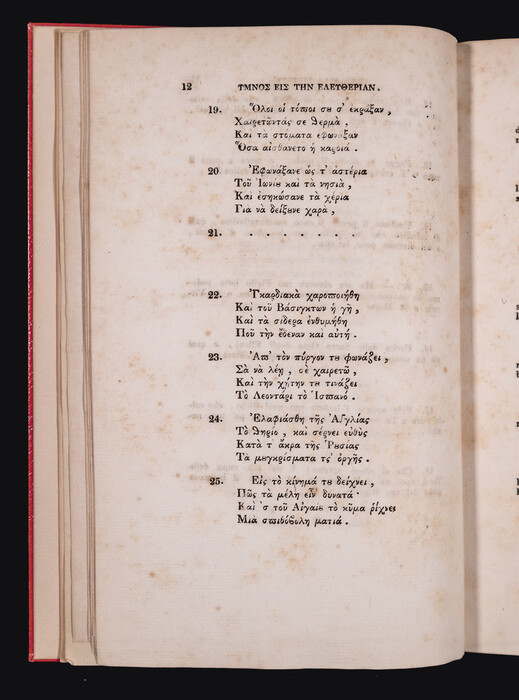 12 ΥΜΝΟΣ ΕΙΣ ΤΗΝ ΕΛΕΥΘΕΡΙΑΝ.
19. Ὅλοι οἱ τόποι σȣ σ' ἔκραξαν,
Χαιρετῶντάς σε θερμὰ,
Καὶ τὰ στόματα ἐφωναξαν
Ὅσα αἰσθάνετο ἡ καρδιά.
20 Ἐφωνάξανε ὡς τ' ἀστέρια
Τοῦ Ἰονίȣ καὶ τὰ νησιὰ,
Καὶ ἐσηκώσανε τὰ χέρια
Γιὰ νὰ δείξȣνε χαρὰ,
21. . . . . . . .
22. Ἐγκαρδιακὰ χαροποιήθη
Καὶ τοῦ Βάσιγκτων ἡ γῆ,
Καὶ τὰ σίδερα ἐνθυμήθη
Ποῦ τὴν ἔδεναν καὶ αὐτή.
23. Ἀπ' τὸν πύργον τȣ φωνάζει,
Σὰ νὰ λέῃ, σὲ χαιρετῶ,
Καὶ τὴν χήτην τȣ τινάζει
Τὸ Λεοντάρι τὸ Ἰσπανό.
24. Ἐλαφιάσθη τῆς Ἀγγλίας
Τὸ θηρίο, καὶ σέρνει εὐθὺς
Κατὰ τ' ἄκρα τῆς Ῥȣσίας
Τὰ μȣγκρίσματα τς' ὀργῆς.
25. Εἰς τὸ κίνημά τȣ δείχνει,
Πῶς τὰ μέλη εἶν δυνατά·
Καὶ 'σ τοῦ Αἰγαίȣ τὸ κῦμα ῥίχνει
Μιὰ σπιθόβολη ματιά.